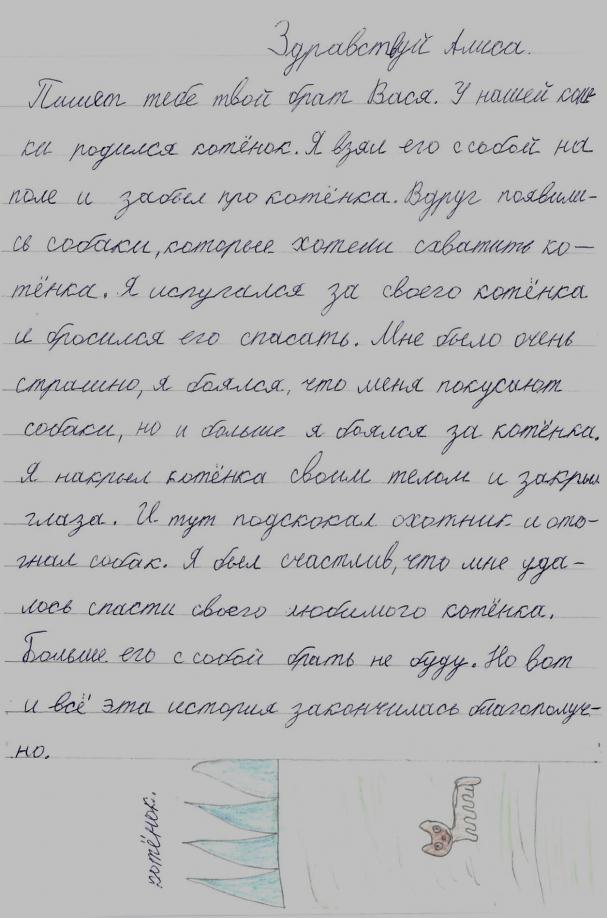 Здравствуй Алиса.
Пишет тебе твой брат Вася. У нашей кош-
ки родился котёнок. Я взял его с собой на
поле и забыл про котёнка. Вдруг появили-
сь собаки, которые хотели схватить ко-
тёнка. Я испугался за своего котёнка
и бросился его спасать. Мне было очень
страшно, я боялся, что меня покусают
собаки, но и больше я боялся за котёнка.
Я накрыл котёнка своим телом и закрыл
глаза. И тут подскокал охотник и ото-
гнал собак. Я был счастлив, что мне уда-
лось спасти своего любимого котёнка.
Больше его с собой брать не буду. Но вот
и всё эта история закончилась благополуч-
но.
котёнок.